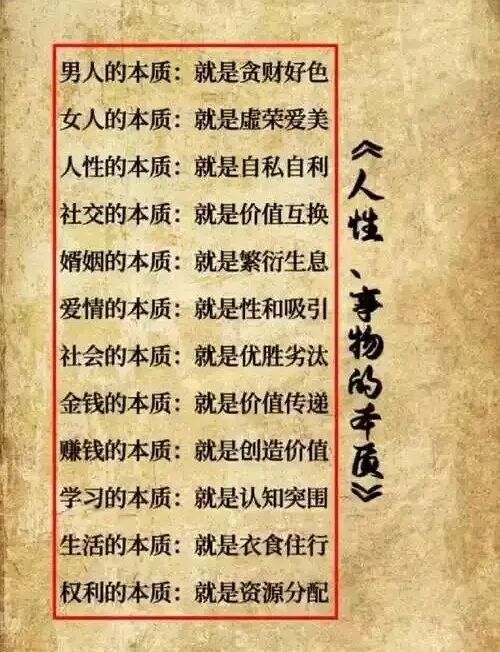 男人的本质：就是贪财好色
女人的本质：就是虚荣爱美
人性的本质：就是自私自利
社交的本质：就是价值互换
婚姻的本质：就是繁衍生息
爱情的本质：就是性和吸引
社会的本质：就是优胜劣汰
金钱的本质：就是价值传递
赚钱的本质：就是创造价值
学习的本质：就是认知突围
生活的本质：就是衣食住行
权利的本质：就是资源分配
《人性、事物的本质》